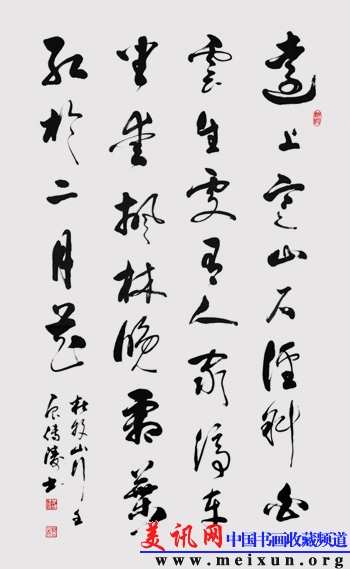 遠上寒山石徑斜白
雲生處有人家停車
坐愛楓林晚霜葉
紅於二月花
杜牧山行壬
辰书
美讯网 中国书画收藏频道
www.meixun.org